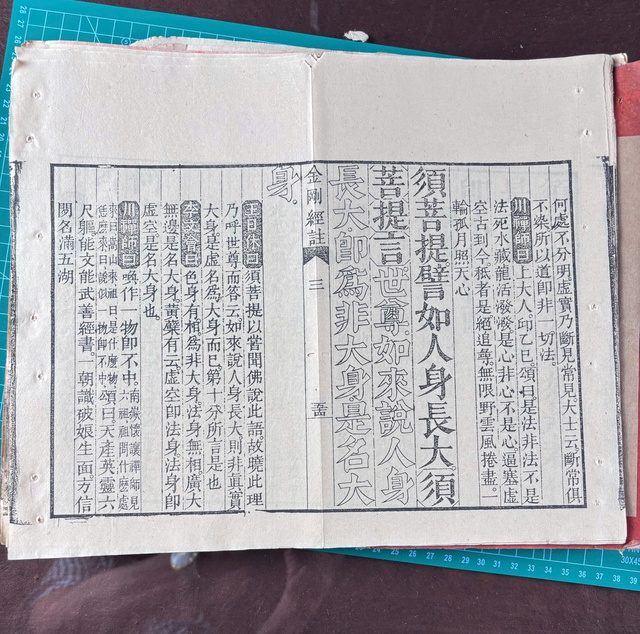 何處不分明虛實乃斷見常見大士云斷常俱
不染所以道即非一切法
川禪師曰上大人丘乙巳頌曰是法非法不是
法死水藏龍活潑潑是心非心不是心逼塞虛
空古到今秪者是絕追尋無限野雲風捲盡一
輪孤月照天心
須菩提譬如人身長大須
菩提言世尊如來說人身
長大即為非大身是名大
身
金剛經註 三
王日休曰須菩提以嘗聞佛說此語故曉此理
乃呼世尊而答云如來說人身長大則非真實
大身是虛名為大身而已第十分所言是也
李文會曰色身有相為非大身法身無相廣大
無邊是名大身黃蘗有云虛空即法身法身即
虛空是名大身也
川禪師曰喚作一物即不中南嶽懷讓禪師見六祖祖問什麼處
來曰嵩山來祖曰是什麼物恁麼來曰說似一物即不中頌曰天產英靈六
尺軀能文能武善經書一朝識破娘生面方信
閑名滿五湖